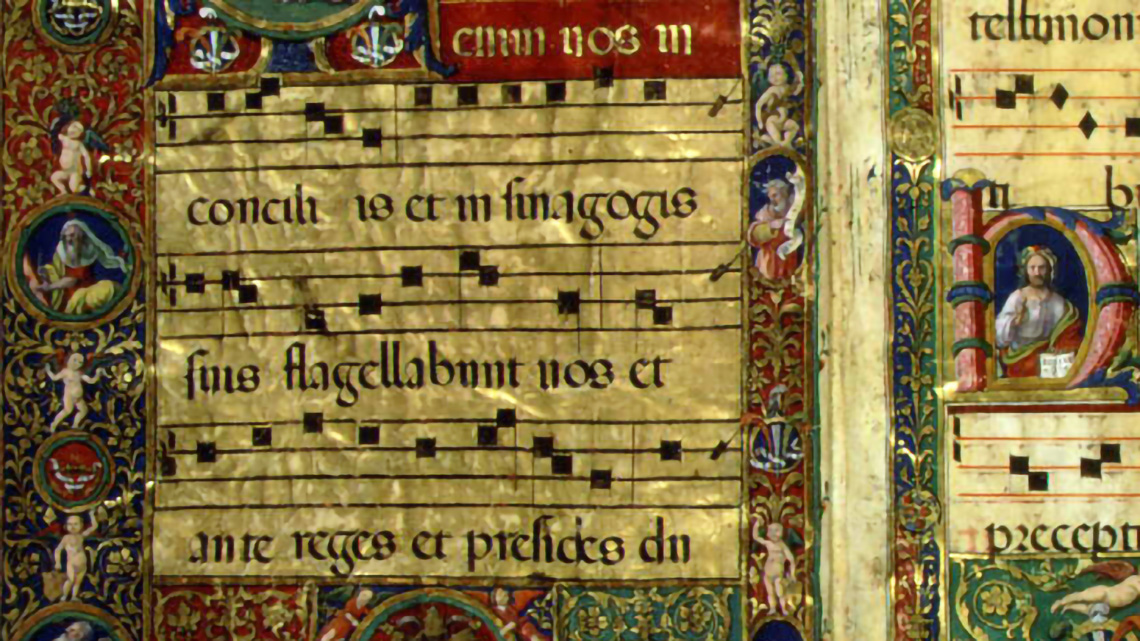 enim vos in
concili is et in sinagogis
suis flagellabunt vos et
ante reges et presides du
testimon
precepti